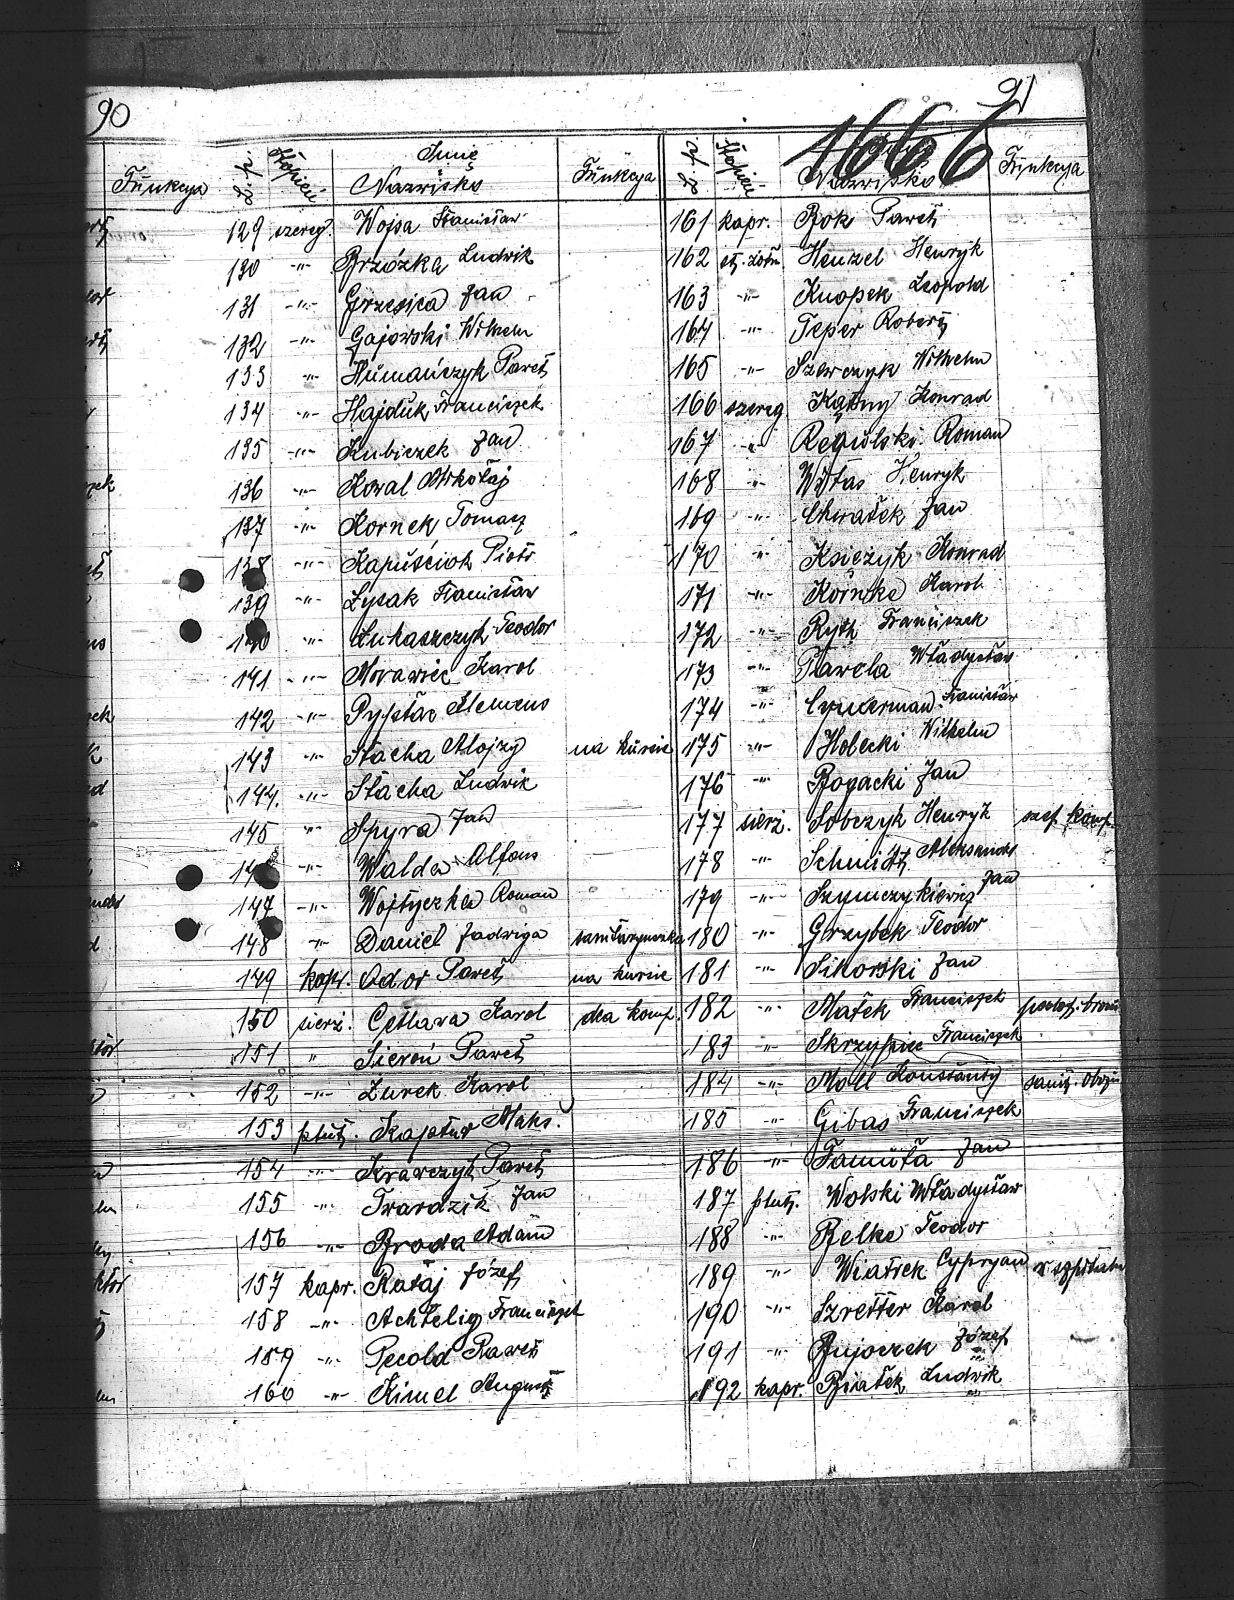 90
91
1666
Funkcya L.p. Stopień Imię Nazwisko Funkcya
129 szereg. Wojsa Stanisław
130 -"- Brzózka Ludwik
131 -"- Grzesica Jan
132 -"- Gajowski Wilhelm
133 -"- Humańczyk Paweł
134 -"- Hajduk Franciszek
135 -"- Kubiczek Jan
136 -"- Kowal Mikołaj
137 -"- Kornek Tomasz
138 -"- Kapuściok Piotr
139 -"- Łysak Stanisław
140 -"- Łukaszczyk Teodor
141 -"- Morawiec Karol
142 -"- Klemens
143 -"- Stacha Alojzy na kursie
144. -"- Stacha Ludwik
145 -"- Spyra Jan
146 -"- Walda Alfons
147 -"- Wojtyczka Roman
148 -"- Daniel Jadwiga sanitaryuszka
149 kapr. Odor Paweł na kursie
150 sierż. Karol dca komp.
151 " Sieroń Paweł
152 -"- Żurek Karol
153 plut. Kajstur Maks.
154 -"- Krawczyk Paweł
155 -"- Twardzik Jan
156 -"- Broda Adam
157 kapr. Rataj Józef
158 -"- Achtelig Franciszek
159 -"- Pecold Paweł
160 -"- Kimel August
L.p. Stopień Nazwisko Funkcya
161 kapr. Bok Paweł
162 st. żołn. Henzel Henryk
163 -"- Knopek Leopold
164 -"- Teper Robert
165 -"- Szewczyk Wilhelm
166 szereg. Kątny Konrad
167 -"- Regulski Roman
168 -"- Witas Henryk
169 -"- Chwałek Jan
170 -"- Księżyk Konrad
171 -"- Körnke Karol
172 -"- Franciszek
173 -"- Pawela Władysław
174 -"- Cymerman Stanisław
175 -"- Holecki Wilhelm
176 -"- Bogacki Jan
177 sierż. Sobczyk Henryk szef komp.
178 -"- Schmidt Aleksander
179 -"- Szymczykiewicz Jan
180 -"- Grzybek Teodor
181 -"- Sikorski Jan
182 -"- Małek Franciszek podof. broni
183 -"- Skrzypiec Franciszek
184 -"- Moll Konstanty
185 -"- Gibas Franciszek
186 -"- Famuła Jan
187 plut. Wolski Władysław
188 -"- Belke Teodor
189 -"- Wiatrek Cypryan w szpitalu
190 -"- Szretter Karol
191 -"- Bujoczek Józef
192 kapr. Białek Ludwik